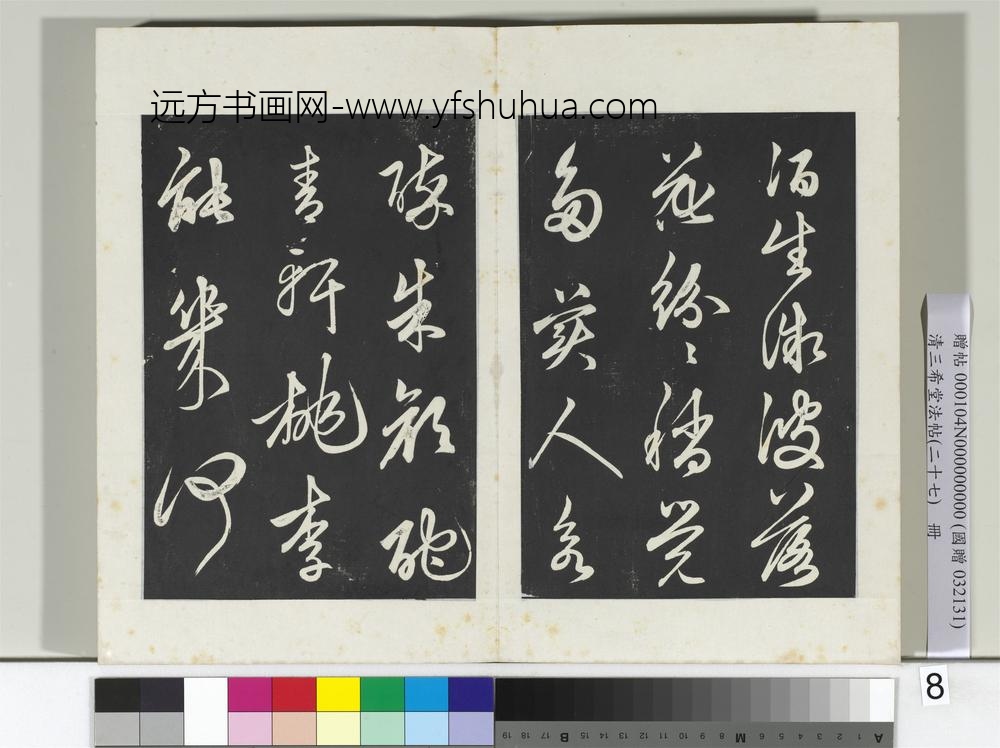 远方书画网-www.yfshuhua.com
酒生微波落
花紛〻稍覺
多美人欲
醉朱顏酡
青軒桃李
能幾何
贈帖 000104N000000000 (國贈 032131)
清三希堂法帖(二十七) 冊
8
A 1 2 3 4 5 6 M 8 9 10 11 12 13 14 15 B 17 18 19